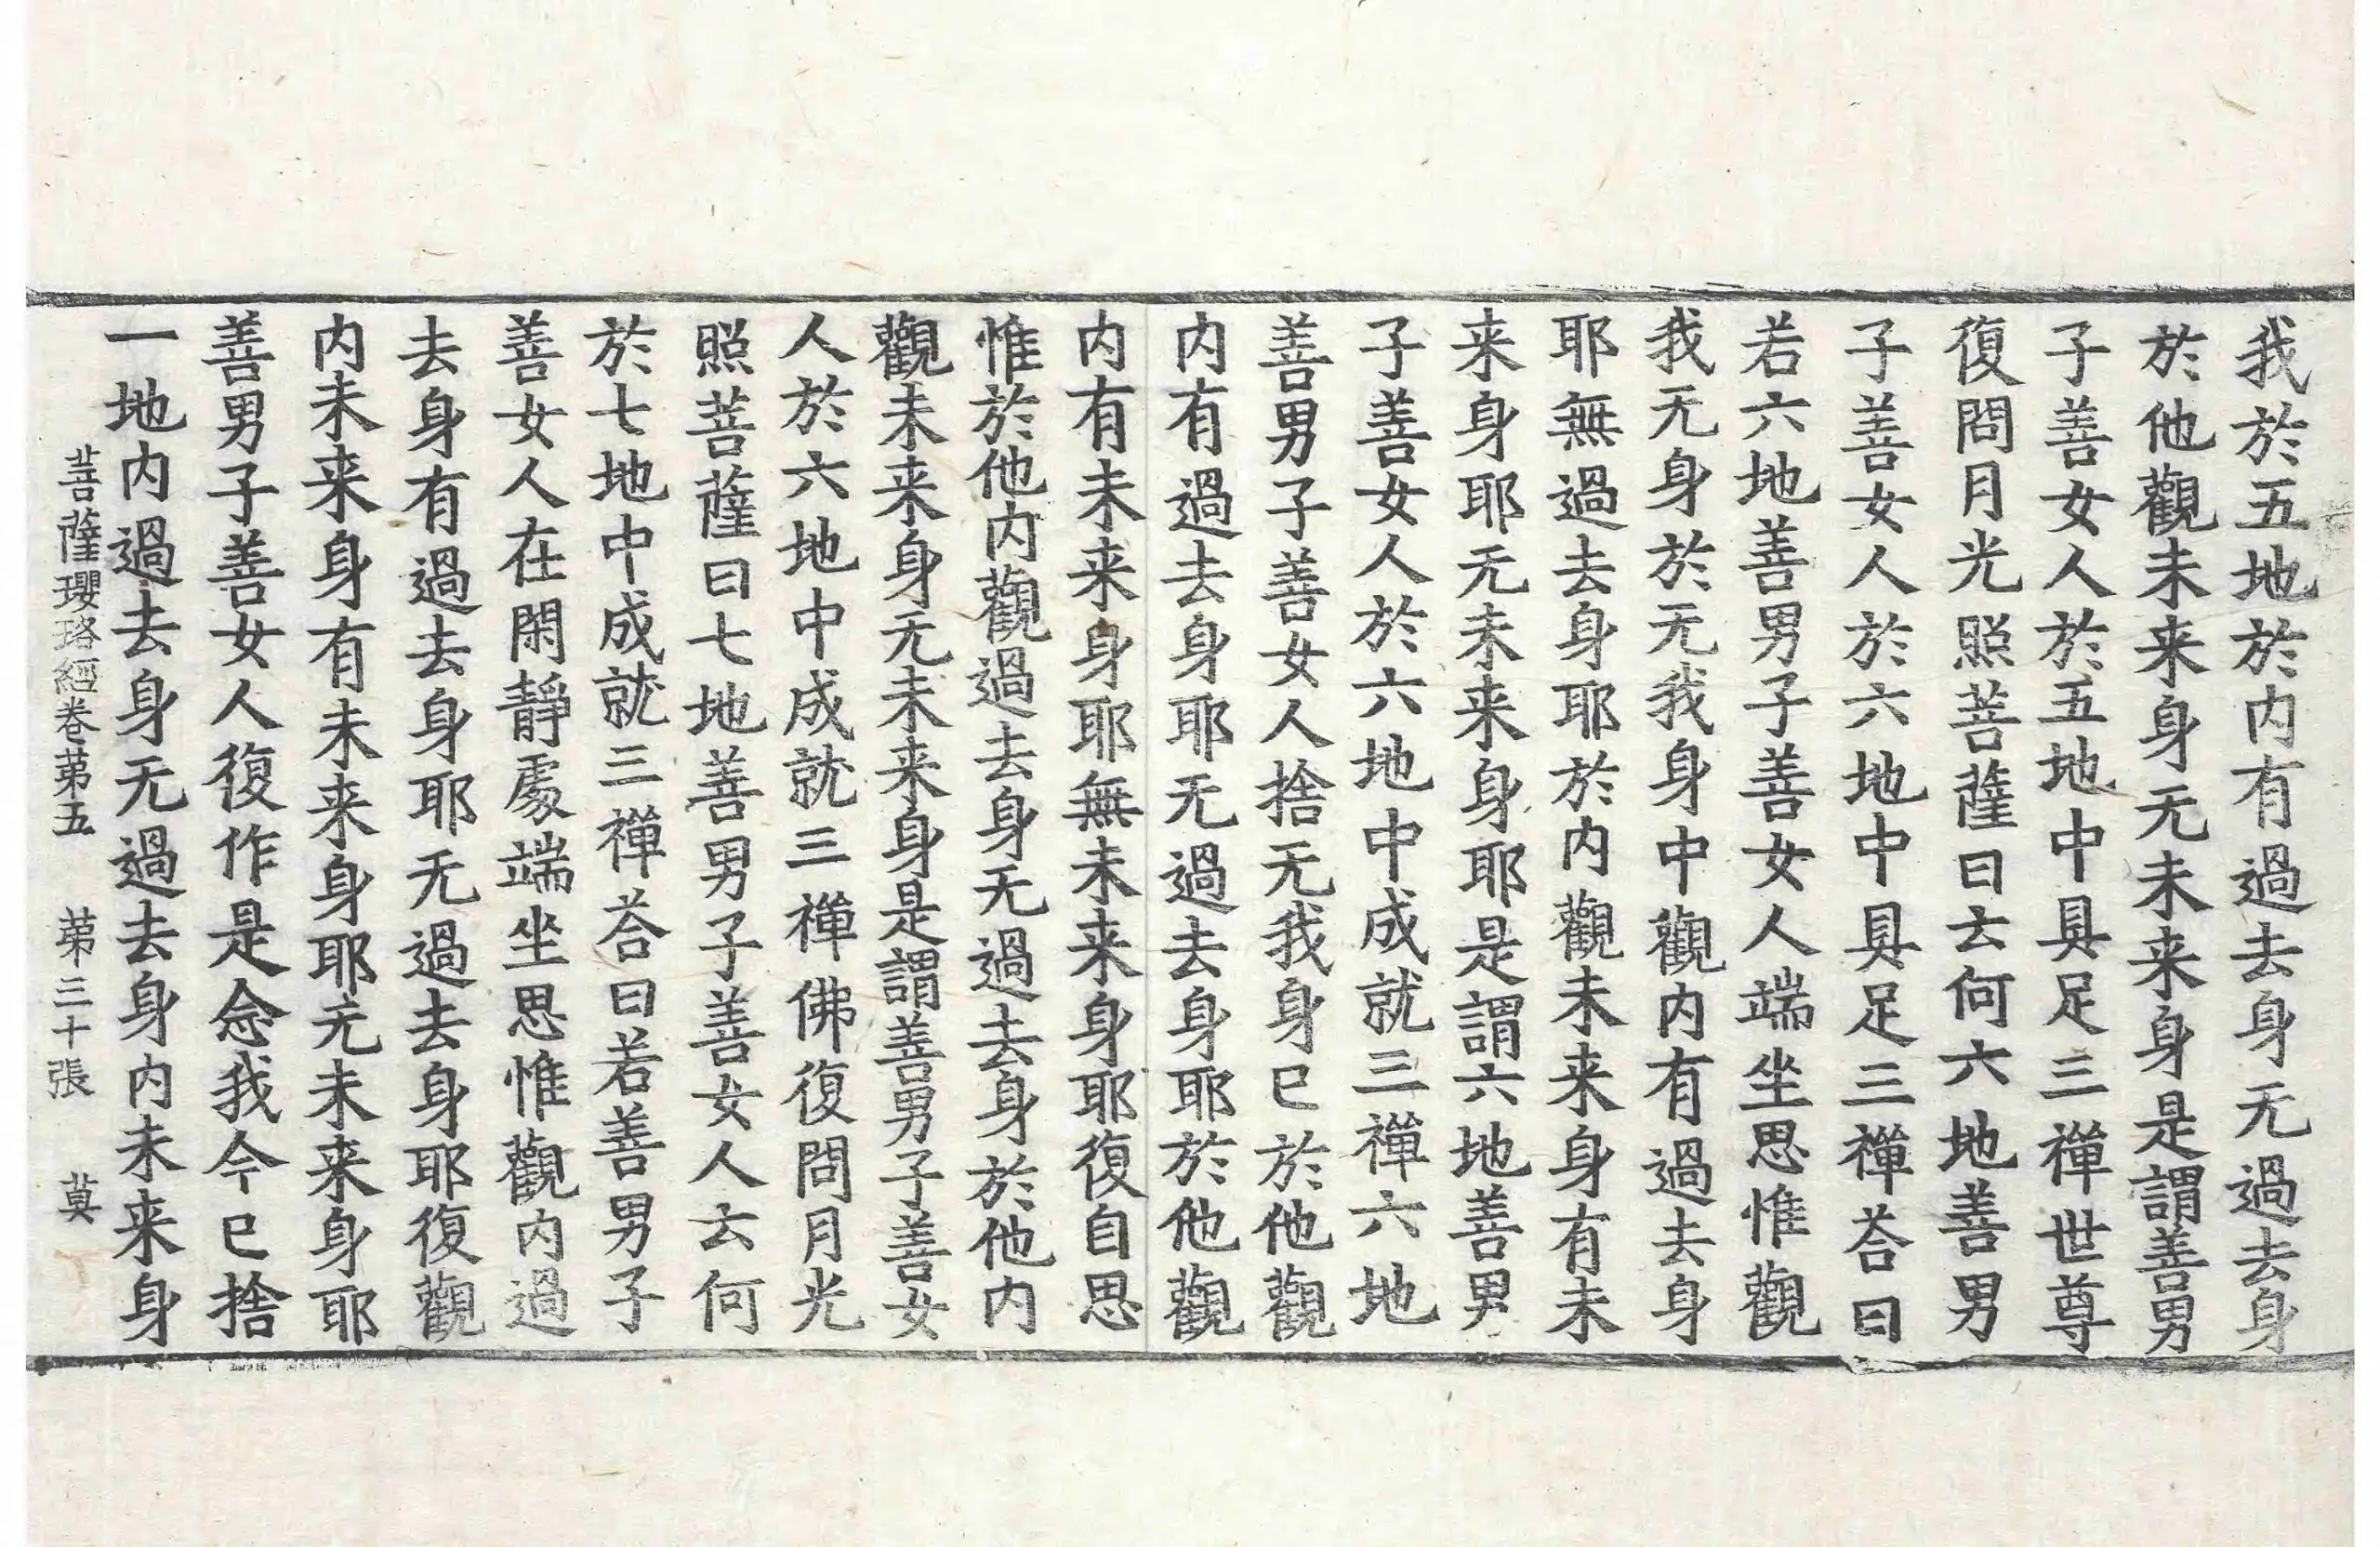 我於五地於内有過去身无過去身
於他觀未来身无未来身是謂善男
子善女人於五地中具足三禪世尊
復問月光照菩薩曰云何六地善男
子善女人於六地中具足三禪荅曰
若六地善男子善女人端坐思惟觀
我无身於无我身中觀内有過去身
耶無過去身耶於内觀未来身有未
来身耶无未来身耶是謂六地善男
子善女人於六地中成就三禪六地
善男子善女人捨无我身已於他觀
内有過去身耶无過去身耶於他觀
内有未来身耶無未来身耶復自思
惟於他内觀過去身无過去身於他内
觀未来身无未来身是謂善男子善女
人於六地中成就三禪佛復問月光
照菩薩曰七地善男子善女人云何
於七地中成就三禪荅曰若善男子
善女人在閑靜處端坐思惟觀内過
去身有過去身耶无過去身耶復觀
内未来身有未来身耶无未来身耶
善男子善女人復作是念我今已捨
一地内過去身无過去身内未来身
菩薩瓔珞經卷苐五 苐三十張 莫